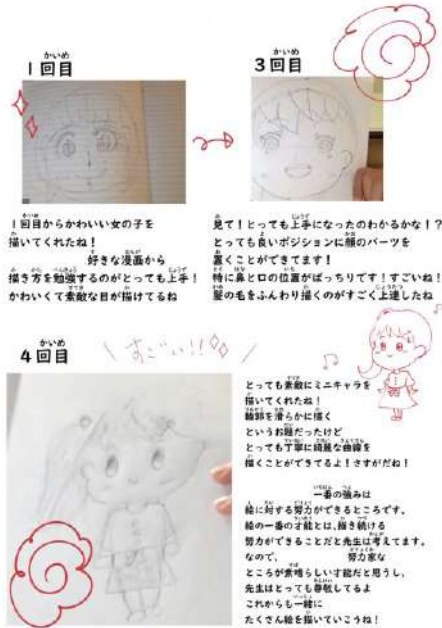 かいめ
1回目
かいめ
3回目
1回目からかわいい女の子を
描いてくれたね!
好きな漫画から
描き方を勉強するのがとっても上手!
かわいくて素敵な目が描けてるね
見て!とっても上手になったのわかるかな!?
とっても良いポジションに顔のパーツを
置くことができてます!
特に鼻と口の位置がばっちりです!すごいね!
髪の毛をふんわり描くのがすごく上達したね
かいめ
4回目
すごい!!
とっても素敵にミニキャラを
描いてくれたね!
輪郭を滑らかに描く
というお題だったけど
とっても丁寧に綺麗な曲線を
描くことができてるよ!さすがだね!
一番の強みは
絵に対する努力ができるところです。
絵の一番の才能とは、描き続ける
努力ができることだと先生は考えてます。
なので、 努力家な
ところが素晴らしい才能だと思うし、
先生はとっても尊敬してるよ
これからも一緒に
たくさん絵を描いていこうね!